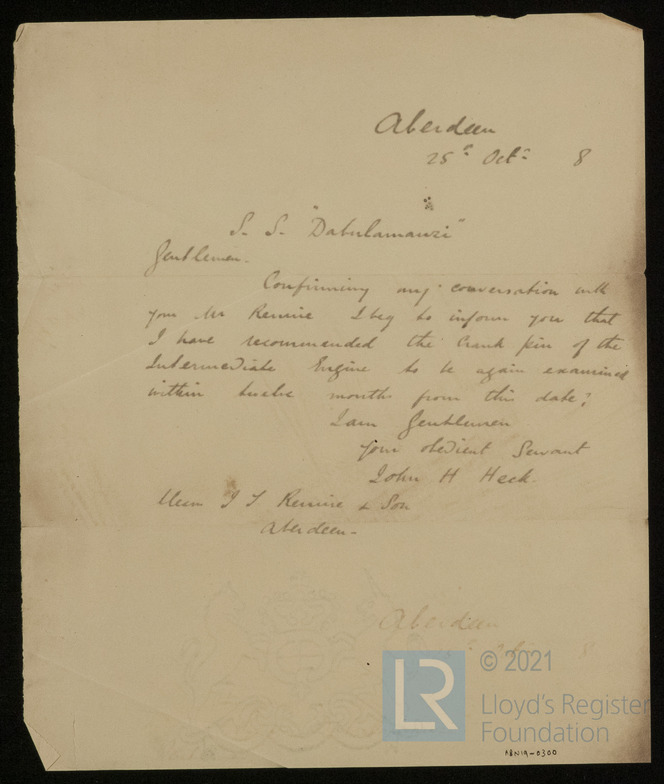 Aberdeen
25th Octr 8
S. S. "Dabulamanzi"
Gentlemen.
Confirming my conversation with
your Mr Rennie I beg to inform you that
I have recommended the Crank pin of the
Intermediate Engine to be again examined
within twelve months from this date;
I am Gentlemen
your obedient Servant
John H Heck.
Messrs J T Rennie & Son
Aberdeen-
Aberdeen
8
© 2021
LR
Lloyd's Register
Foundation
ABN19-0300